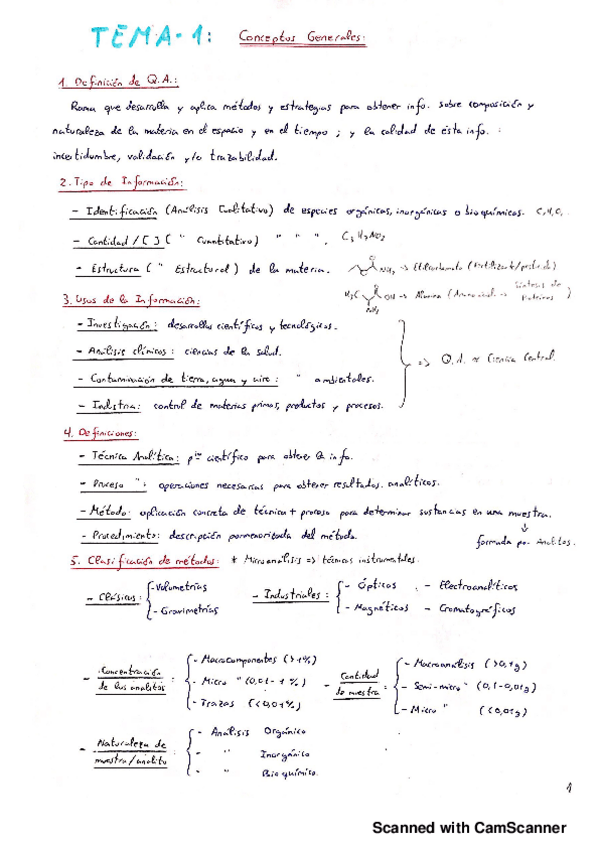 TEMA-1: Conceptos Generales:
1. Definición de Q.A.:
Rama que desarrolla y aplica métodos y estrategias para obtener info. sobre composición y
naturaleza de la materia en el espacio y en el tiempo ; y la calidad de ésta info. :
incertidumbre, validación y/o trazabilidad.
2. Tipo de Información:
- Identificación (Análisis Cualitativo) de especies orgánicas, inorgánicas o bioquímicas. C, H, O,
- Cantidad / [ ] ( " Cuantitativo) " " " . C3H7NO2
- Estructura ( " Estructural ) de la materia. NH2 -> Etilcarbamato (Fertilizante/pesticida)
H3C OH -> Alanina (Aminoácido -> Síntesis de Proteínas )
NH2
3. Usos de la Información:
- Investigación : desarrollos científicos y tecnológicos.
- Análisis clínicos : ciencias de la salud.
- Contaminación de tierra, agua y aire : " ambientales.
- Industria : control de materias primas, productos y procesos.
=> Q.A. ≈ Ciencia Central.
4. Definiciones:
- Técnica Analítica : pio científico para obtener la info.
- Proceso " : operaciones necesarias para obtener resultados. analíticos.
- Método : aplicación concreta de técnica + proceso para determinar sustancias en una muestra.
- Procedimiento : descripción pormenorizada del método.
formada por Analitos.
5. Clasificación de métodos: * Microanálisis => técnicas instrumentales.
- Clásicos : - Volumetrías
- Gravimetrías
- Industriales : - Ópticos - Electroanalíticos
- Magnéticos - Cromatográficos
- Concentración de los analitos : - Macrocomponentes (>1%)
- Micro " (0,01 - 1 %)
- Trazas (<0,01%)
- Cantidad de muestra : - Macroanálisis (>0,1g)
- Semi-micro " (0,1-0,01g)
- Micro " (<0,01g)
- Naturaleza de muestra/analito : - Análisis Orgánico
- " Inorgánico
- " Bioquímico.
1
Scanned with CamScanner